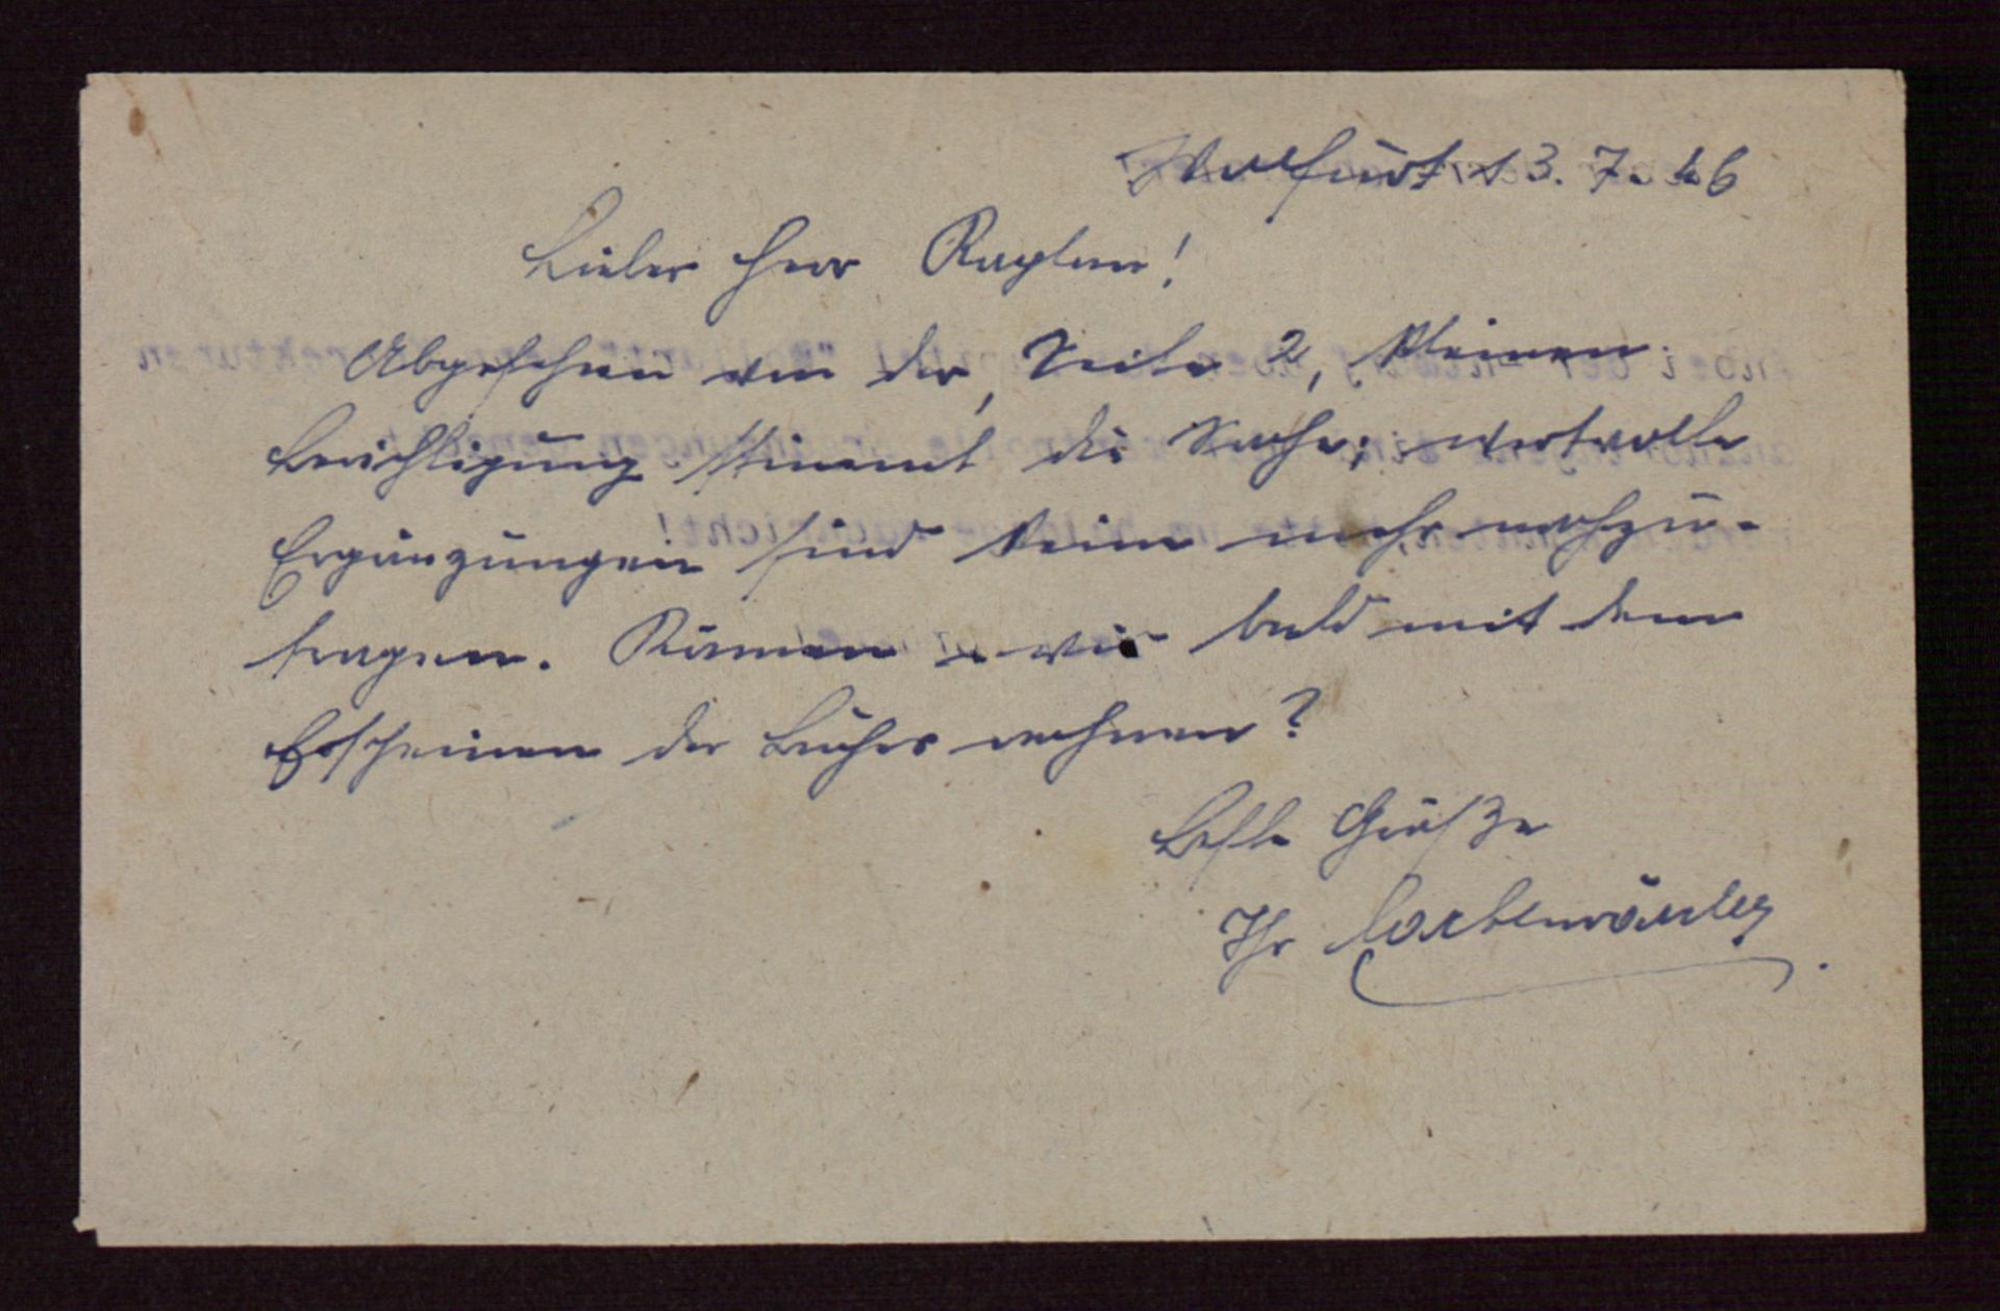 13.7.46
Lieber Herr
Abgesehen von der, Seite 2, kleinen
Berichtigung stimmt die Sache; wertvolle
Ergänzungen sind keine mehr nachzu-
tragen. Können wir bald mit dem
Erscheinen der Bücher rechnen?
Beste Grüße
Ihr